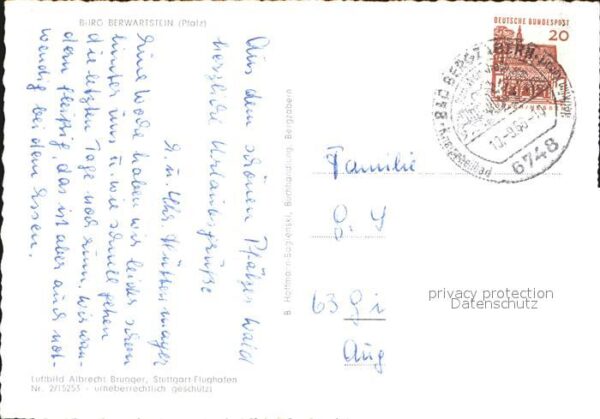 BURG BERWARTSTEIN (Pfalz)
DEUTSCHE BUNDESPOST
20
BAD BERGZABERN
6748
Aus dem schönen Pfälzer Wald
herzliche Urlaubsgrüße
G. u. Chr. Hüttenmayer
Eine Woche haben wir leider schon
hinter uns u. wie schnell gehen
die letzten Tage noch rum. Wir wan-
dern fleißig, das ist aber auch not-
wendig bei dem Essen.
B. Hoffmann-Suglenski, Buchhandlung, Bergzabern
Familie
63 Gi
privacy protection
Datenschutz
Luftbild Albrecht Brugger, Stuttgart-Flughafen
Nr. 2/15253 - urheberrechtlich geschützt